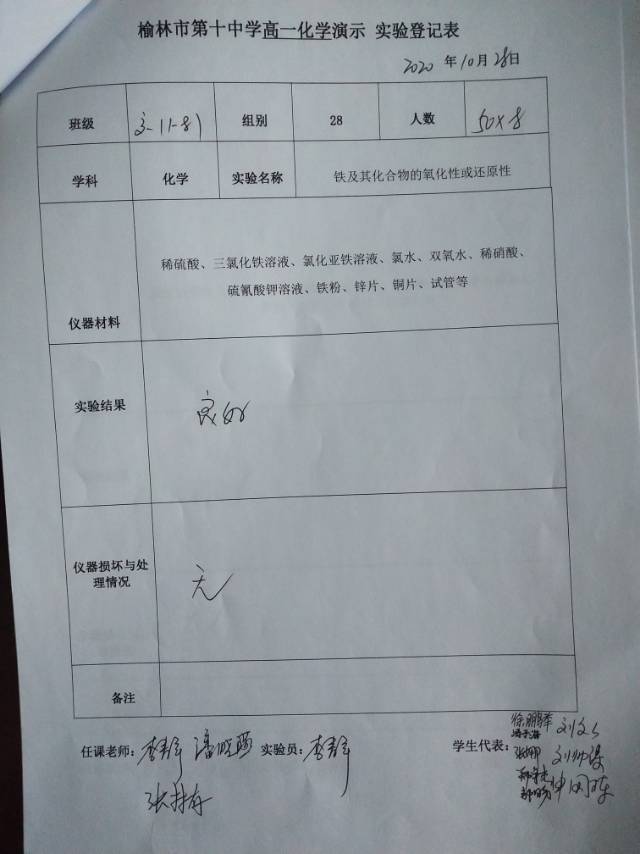 榆林市第十中学高一化学演示 实验登记表
2020 年10月28日
班级 高一(1-8) 组别 28 人数 50×8
学科 化学 实验名称 铁及其化合物的氧化性或还原性
稀硫酸、三氯化铁溶液、氯化亚铁溶液、氯水、双氧水、稀硝酸、
硫氰酸钾溶液、铁粉、锌片、铜片、试管等
仪器材料
实验结果 良好
仪器损坏与处
理情况
无
备注
任课老师: 实验员: 学生代表: